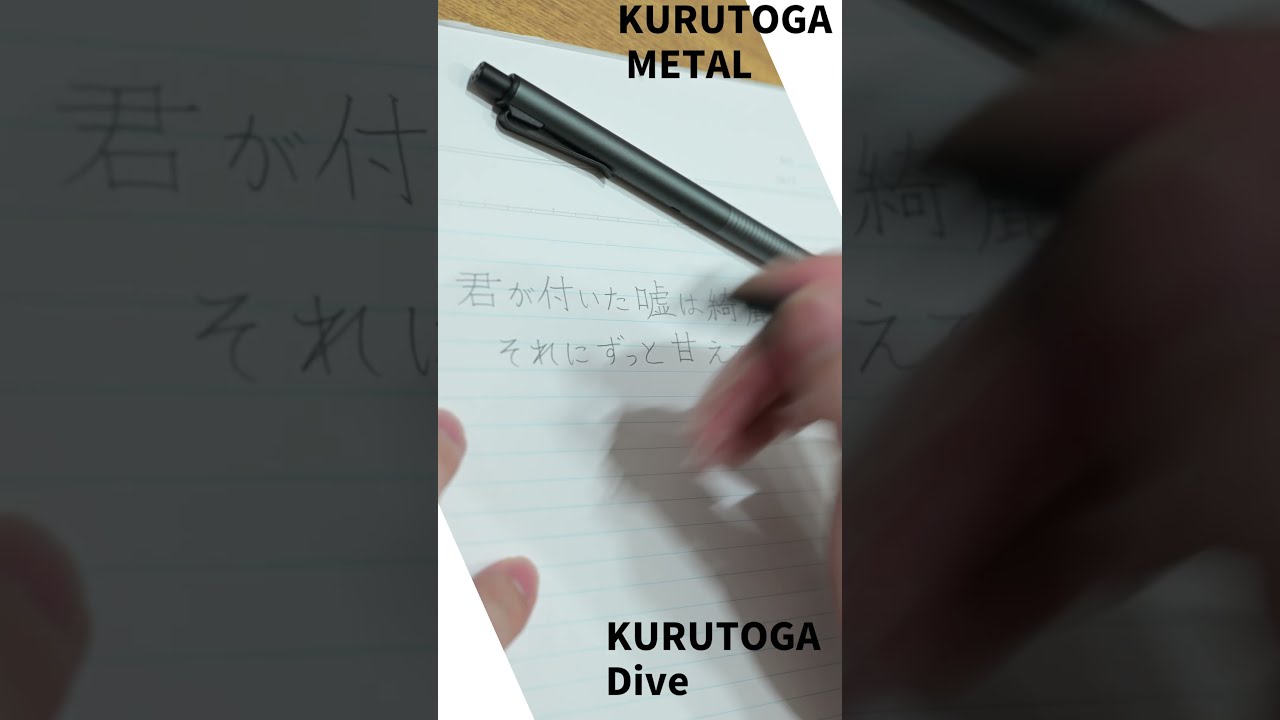 KURUTOGA
METAL
君が付いた嘘は綺
それにずっと甘え
KURUTOGA
Dive